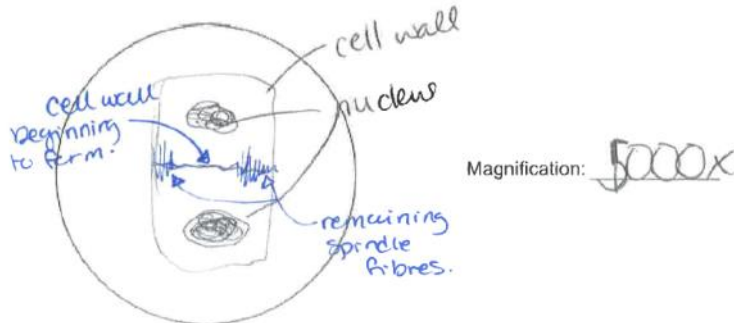 cell wall
nucleus
cell wall
beginning
to form.
remaining
spindle
fibres.
Magnification: 5000x